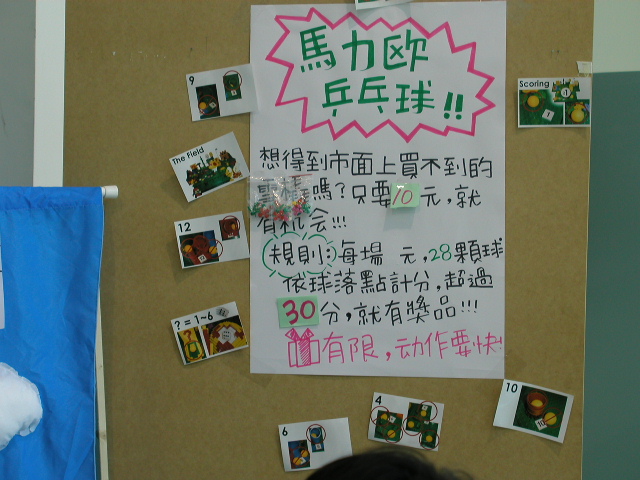 馬力欧
乒乓球!!
想得到市面上買不到的
嗎?只要10元,就
有机会!!!
規則:每場 元,28顆球
依球落點計分,超過
30分,就有獎品!!!
有限,动作要快!
9
The Field
12
? = 1~6
6
4
10
Scoring